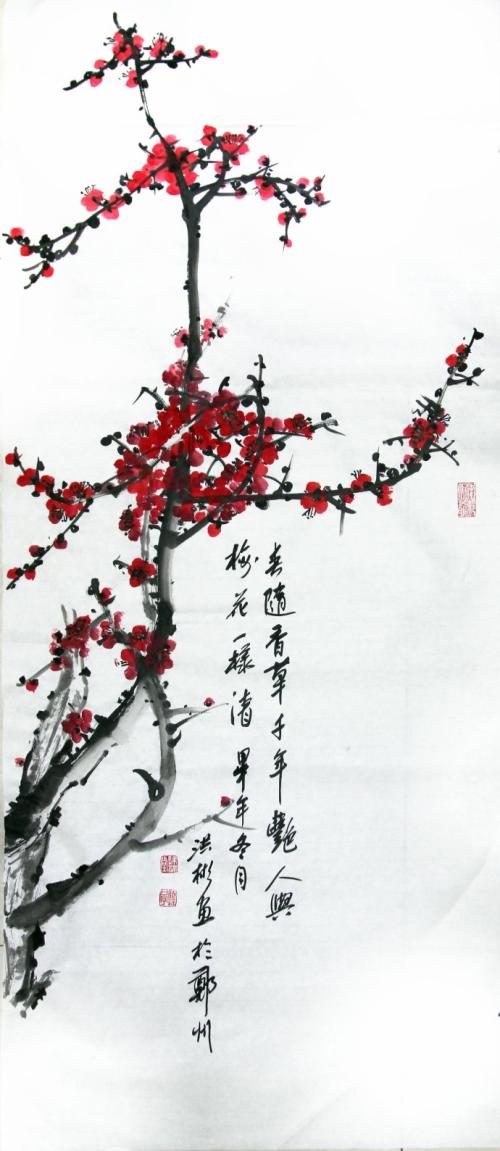 春随香草千年艷人與
梅花一樣清 年冬月
洪彬畫於鄭州